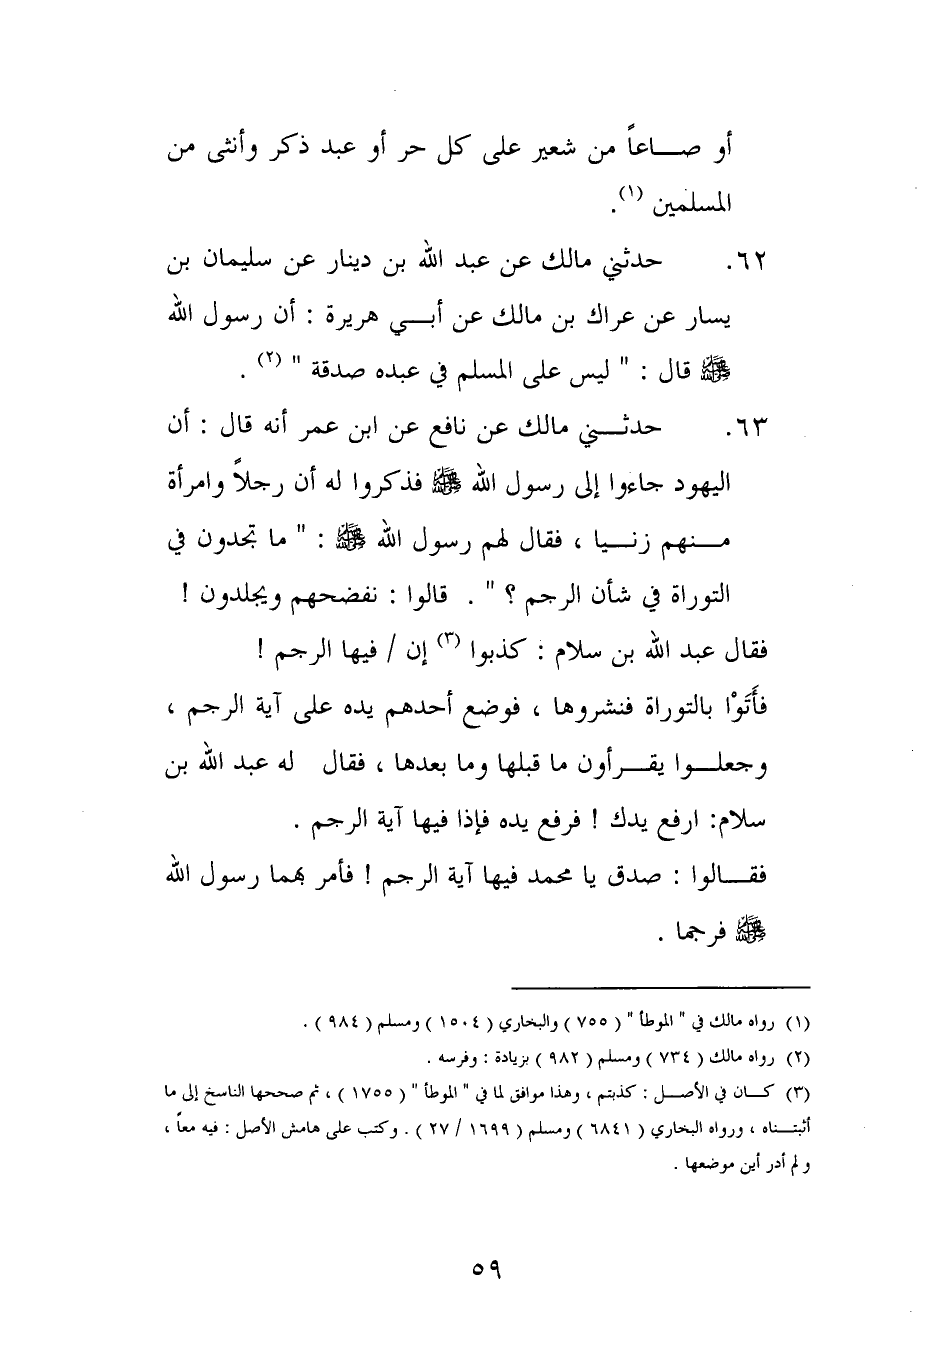 أو صاعاً من شعير على كل حر أو عبد ذكر وأنثى من
المسلمين (١).
٦٢. حدثني مالك عن عبد الله بن دينار عن سليمان بن
يسار عن عراك بن مالك عن أبي هريرة : أن رسول الله
ﷺ قال : " ليس على المسلم في عبده صدقة " (٢) .
٦٣. حدثني مالك عن نافع عن ابن عمر أنه قال : أن
اليهود جاءوا إلى رسول الله ﷺ فذكروا له أن رجلاً وامرأة
منهم زنيا ، فقال لهم رسول الله ﷺ : " ما تجدون في
التوراة في شأن الرجم ؟ " . قالوا : نفضحهم ويجلدون !
فقال عبد الله بن سلام : كذبوا (٣) إن / فيها الرجم !
فأَتَوْا بالتوراة فنشروها ، فوضع أحدهم يده على آية الرجم ،
وجعلوا يقرأون ما قبلها وما بعدها ، فقال له عبد الله بن
سلام: ارفع يدك ! فرفع يده فإذا فيها آية الرجم .
فقالوا : صدق يا محمد فيها آية الرجم ! فأمر بهما رسول الله
ﷺ فرجما .
(١) رواه مالك في " الموطأ " ( ٧٥٥ ) والبخاري ( ١٥٠٤ ) ومسلم ( ٩٨٤ ) .
(٢) رواه مالك ( ٧٣٤ ) ومسلم ( ٩٨٢ ) بزيادة : وفرسه .
(٣) كان في الأصل : كذبتم ، وهذا موافق لما في " الموطأ " ( ١٧٥٥ ) ، ثم صححها الناسخ إلى ما
أثبتناه ، ورواه البخاري ( ٦٨٤١ ) ومسلم ( ١٦٩٩ / ٢٧ ) . وكتب على هامش الأصل : فيه معاً ،
و لم أدر أين موضعها .
٥٩